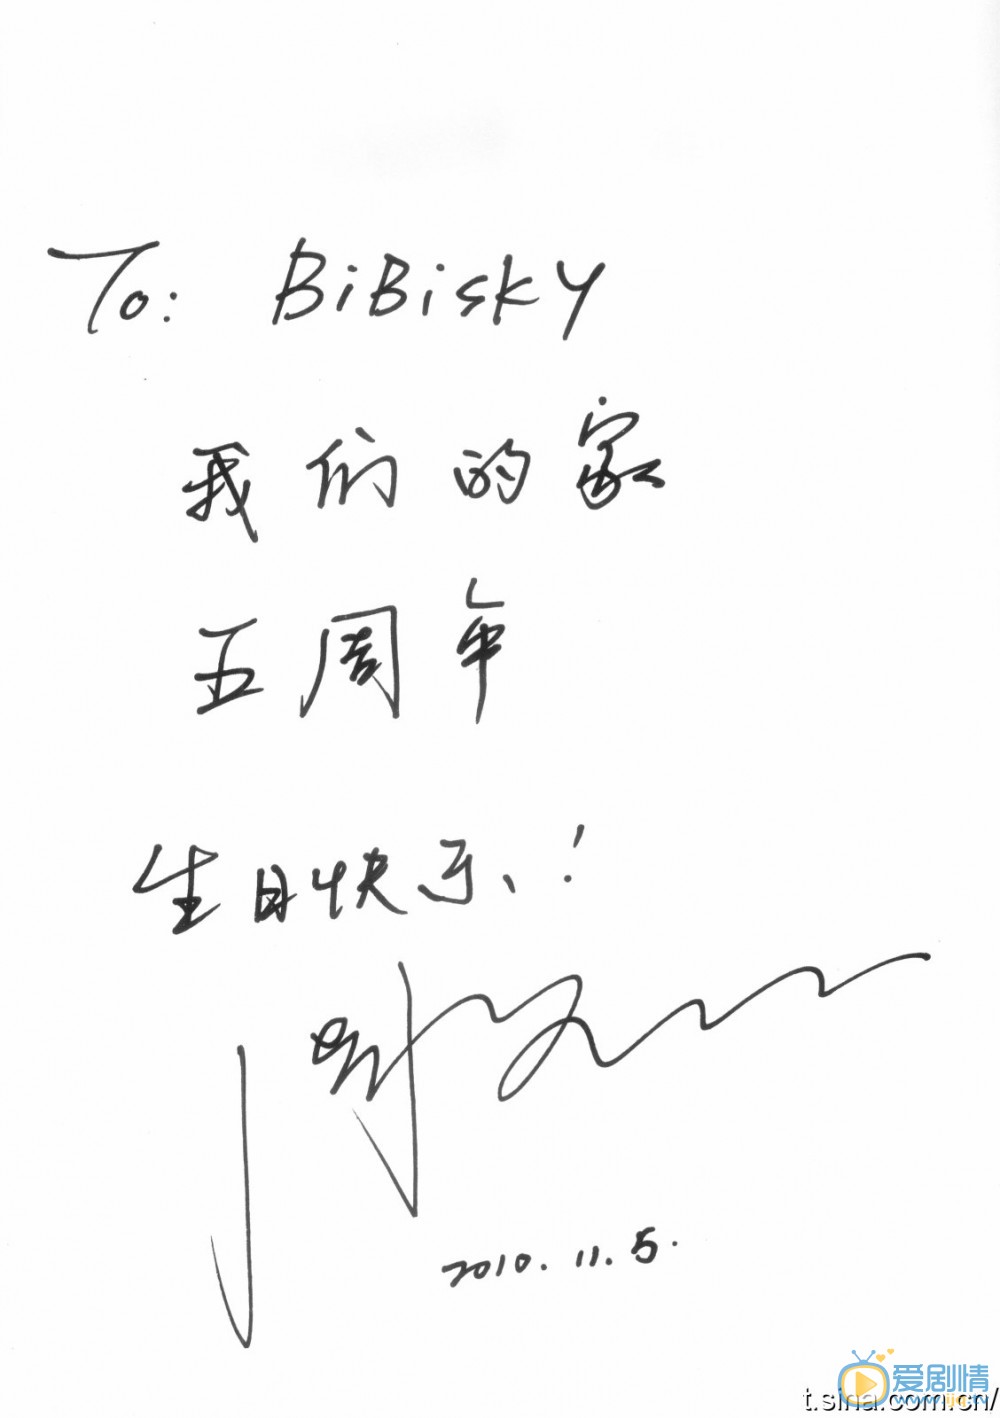 To: BiBisky
我们的家
五周年
生日快乐!
2010.11.5.
爱剧情
www.ijq.tv
t.sina.com.cn/